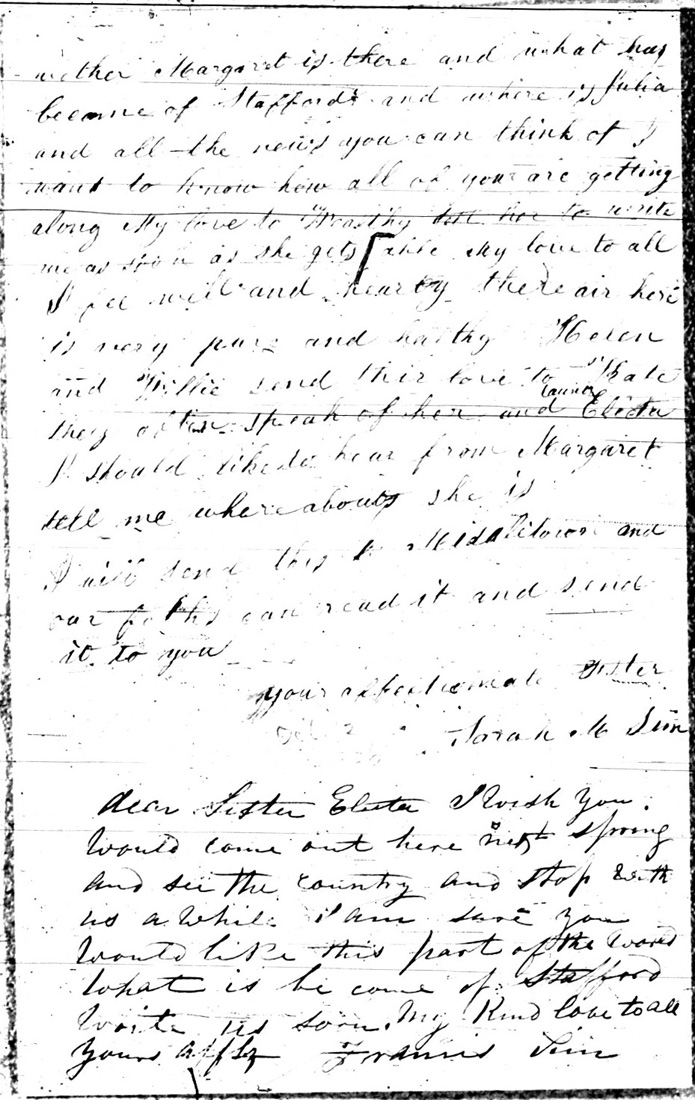 wether Margaret is there and what has
become of Staffords and where is Julia
and all the news you can think of I
want to know how all of you are getting
along My love to tell her to write
me as soon as she gets able My love to all
I fee well and hearty the air here
is very pure and halthy Helen
and Willie send thir love to Kate
they often speak of her and Electa
I should like to hear from Margaret
tell me whereabouts she is
I will send this to Middletown and
our folks can read it and send
it to you
your affectionate Sister
Sarah M Sim
dear Sister Electa I wish you
would come out here next spring
and see the country and stop with
us a while i am sure you
would like this part of the world
What is be come of Stafford
Write us soon. My Kind love to all
Yours affly Francis Sim